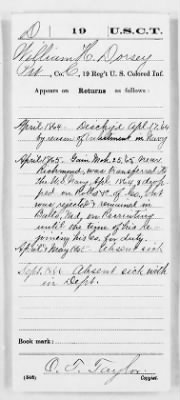 D | 19 | U.S.C.T.
William H. Dorsey
Pvt, Co. C, 19 Reg't U. S. Colored Inf.
Appears on Returns as follows:
April 1864. Disch'd Apl 17, 64
by reason of enlistment in Navy
April 1865. Gain Mch 25, 65 near
Richmond, was transferred to
the U.S. Navy Apl 1864 & drop
ped on Rolls of Co, who
was rejected & remained in
Balto, Md, on Recruiting
until the time of his Re
joining his Co. for duty.
April & May 1865 Absent sick
Sept. 1866 Absent sick with
in Dept.
Book mark:
C. F. Taylor
(546) Copyist.